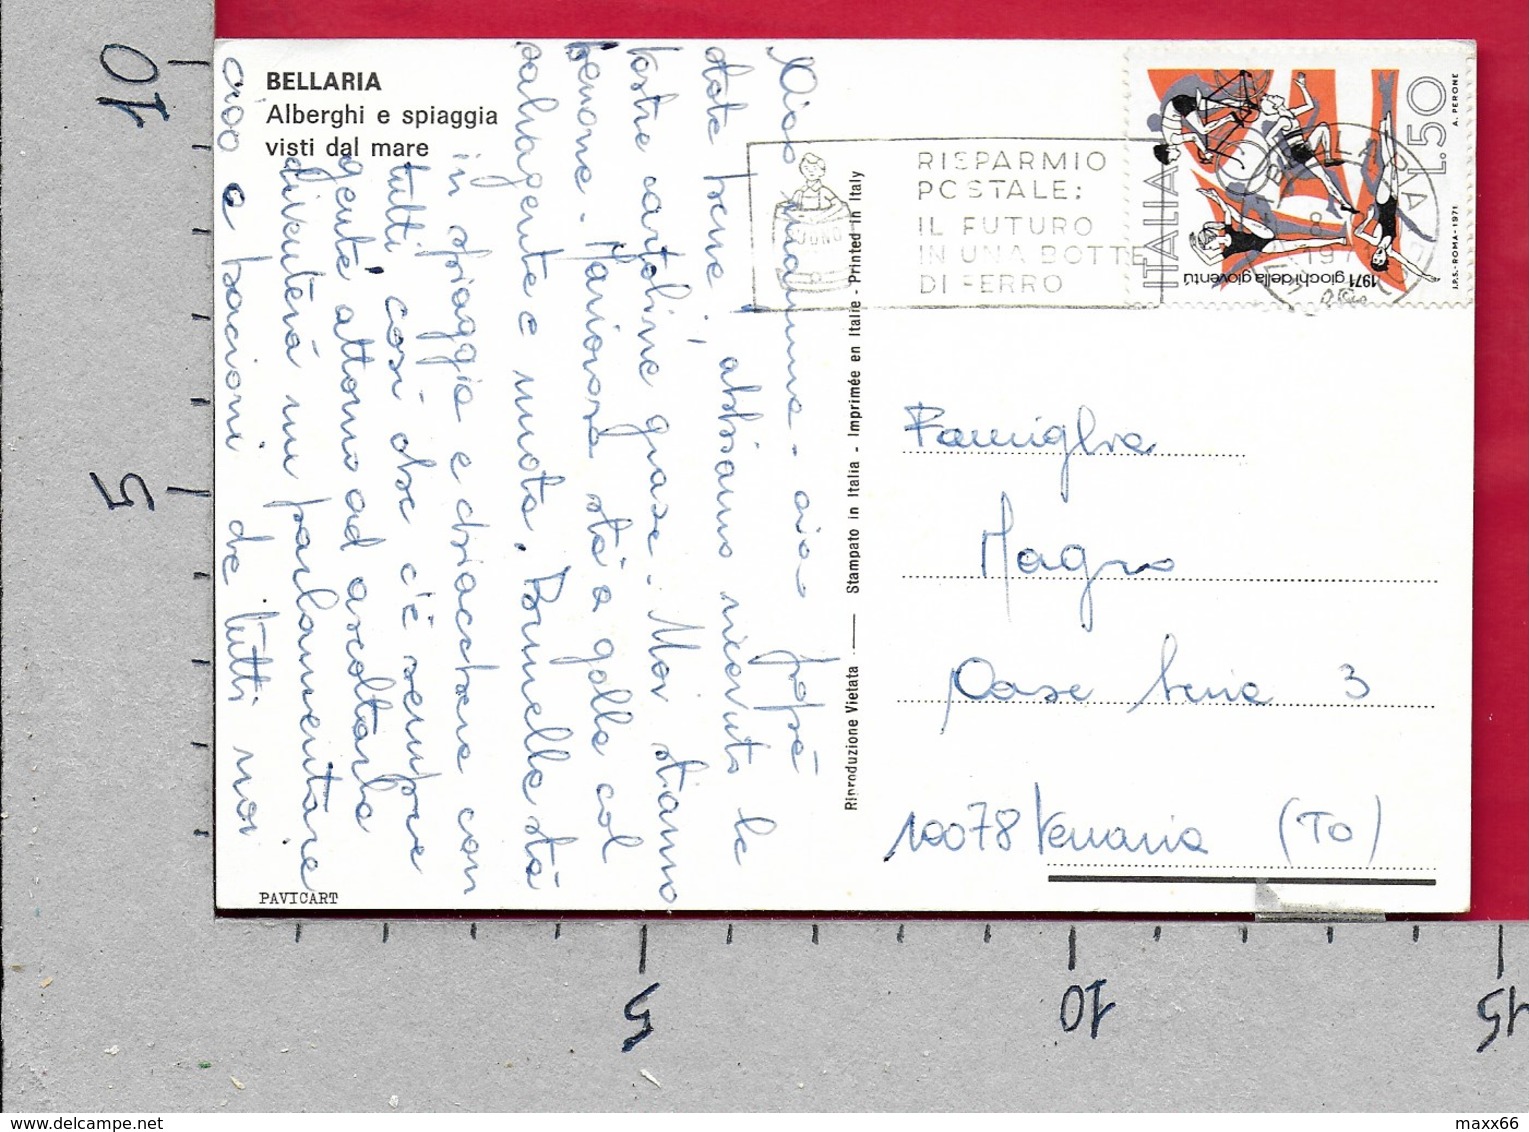 BELLARIA
Alberghi e spiaggia
visti dal mare
Ciao mamma - ciao papà
state bene, abbiamo ricevuto le
vostre cartoline grazie. Noi stiamo
benone. Marinosa stà a galla col
salvagente e nuota. Brunella stà
in spiaggia e chiacchiera con
tutti, così che c'è sempre
gente attorno ad ascoltarla
diventerà un parlamentare
ciao e bacioni da tutti noi
PAVICART
Riproduzione Vietata — Stampato in Italia - Imprimée en Italie - Printed in Italy
RISPARMIO
POSTALE:
IL FUTURO
IN UNA BOTTE
DI FERRO
ITALIA
1971 giochi della gioventú
L. 50
I.P.S.-ROMA-1971
A. PERONE
Famiglia
Magro
Case Snia 3
10078 Venaria (To)
10
5
5
10
15
delcampe.net
maxx66